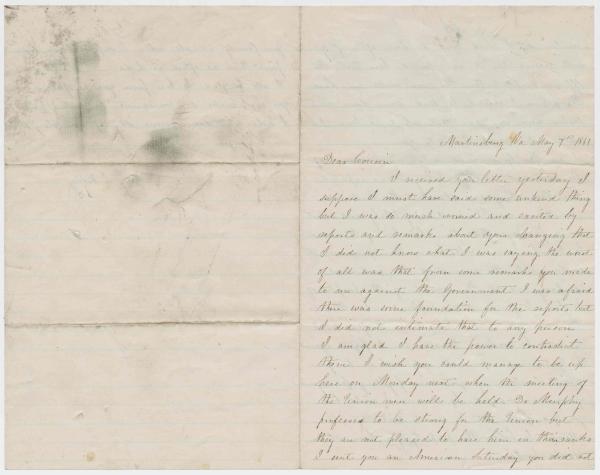 Martinsburg Va May 7th 1861
Dear Cousin
I received your letter yesterday I
suppose I must have said some unkind thing
but I was so much worried and excited by
reports and remarks about your changing that
I did not know what I was saying the worst
of all was that from some remarks you made
to me against the Government I was afraid
there was some foundation for the reports but
I did not intimate that to any person
I am glad I have the power to contradict
them I wish you could manage to be up
here on Monday next when the meeting of
the Union men will be held Do Murphy
professes to be strong for the Union but
they are not pleased to have him in their ranks
I sent you an American Saturday you did not